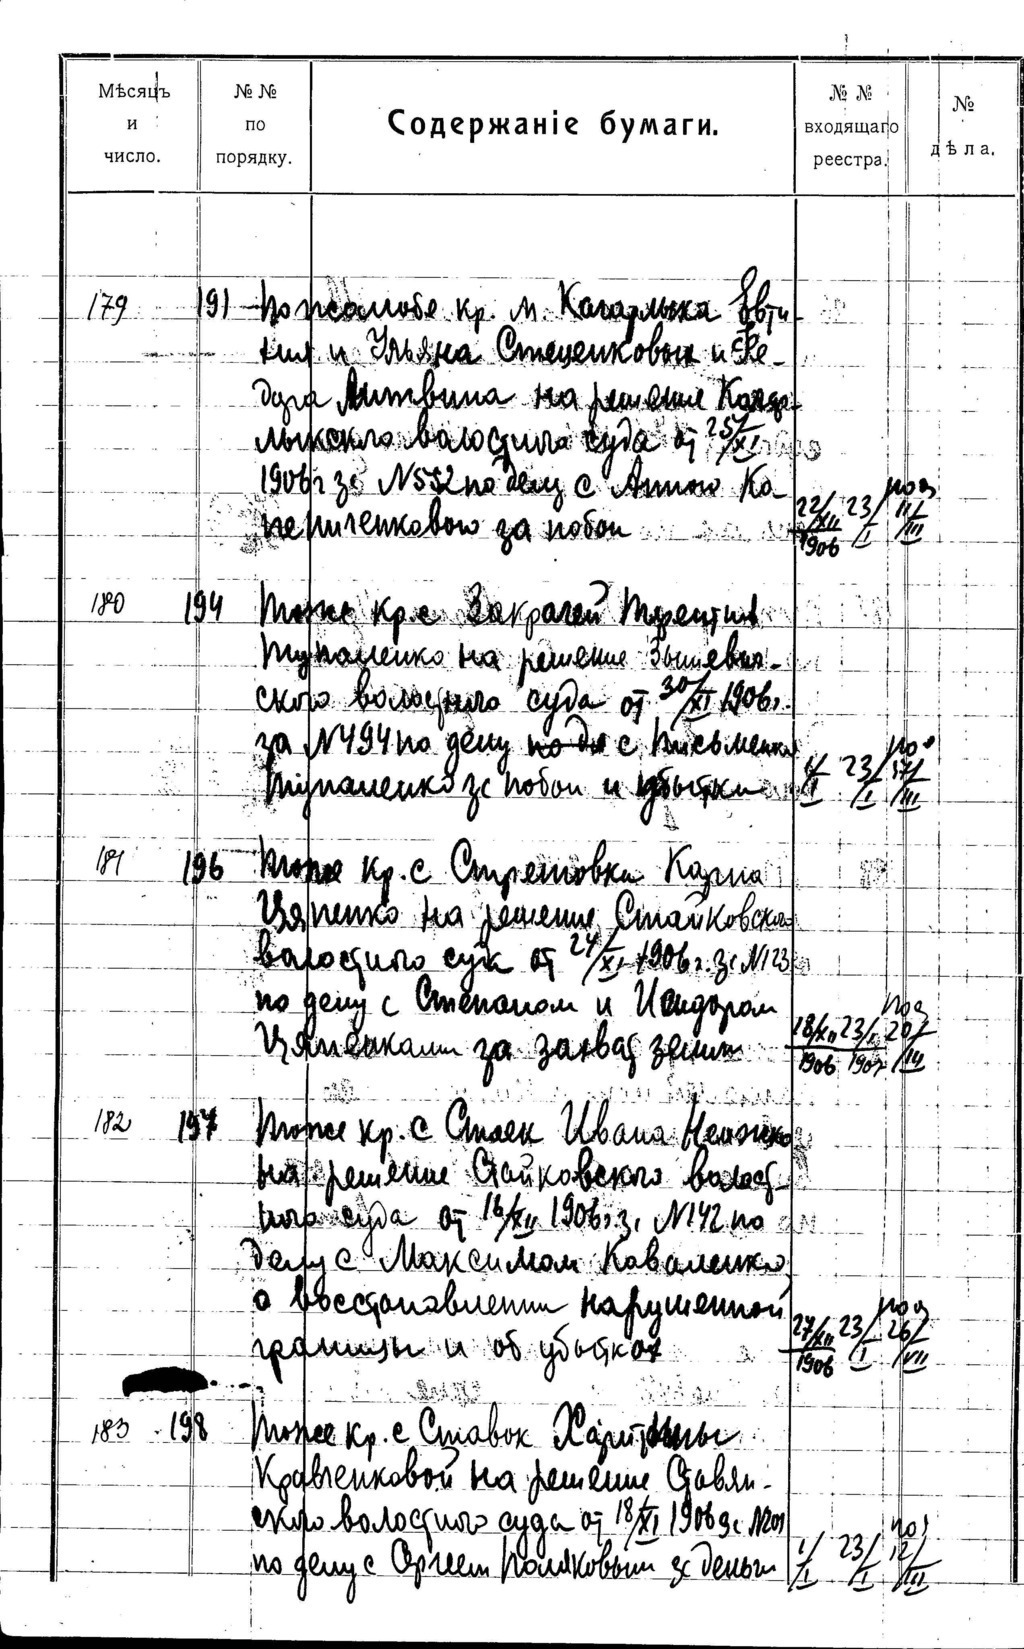 Мѣсяцъ и число.
№ № по порядку.
Содержаніе бумаги.
№ № входящаго реестра.
№ дѣла.
179 191 По жалобе кр. м. Кагарлыка Евти-
хия и Ульяна Стеценковых и Фе-
дора Литвина на решение Кагар-
лыкского волостного суда от 25/XI
1906 г за N 552 по делу с Анною Ка-
за побои 22/XII 1906 23/I 11/III
180 194 Тоже кр. с Терентия
Тупаленко на решение
ского волостного суда от 30/XI 1906 г.
за N 494 по делу с
Тупаленко за побои и убытки 1/I 23/I 17/III
181 196 Тоже кр. с Стретовки Карпа
Цяпенко на решение Стайковского
волостного суда от 24/XI 1906 г. за N 123
по делу с Степаном и Исидором
Цяпенками за захват земли 18/XII 1906 23/I 1907 20/III
182 197 Тоже кр. с Стаек Ивана
на решение Стайковского волост-
ного суда от 16/XII 1906 г. за N 142 по
делу с Максимом Коваленко
о восстановлении нарушенной
границы и об убытках 27/XII 1906 23/I 26/VII
183 198 Тоже кр. с Ставок Харитины
Кравченковой на решение Ставян-
ского волостного суда от 18/XI 1906 за N 201
по делу с Поляковым за деньги 1/I 23/I 12/III